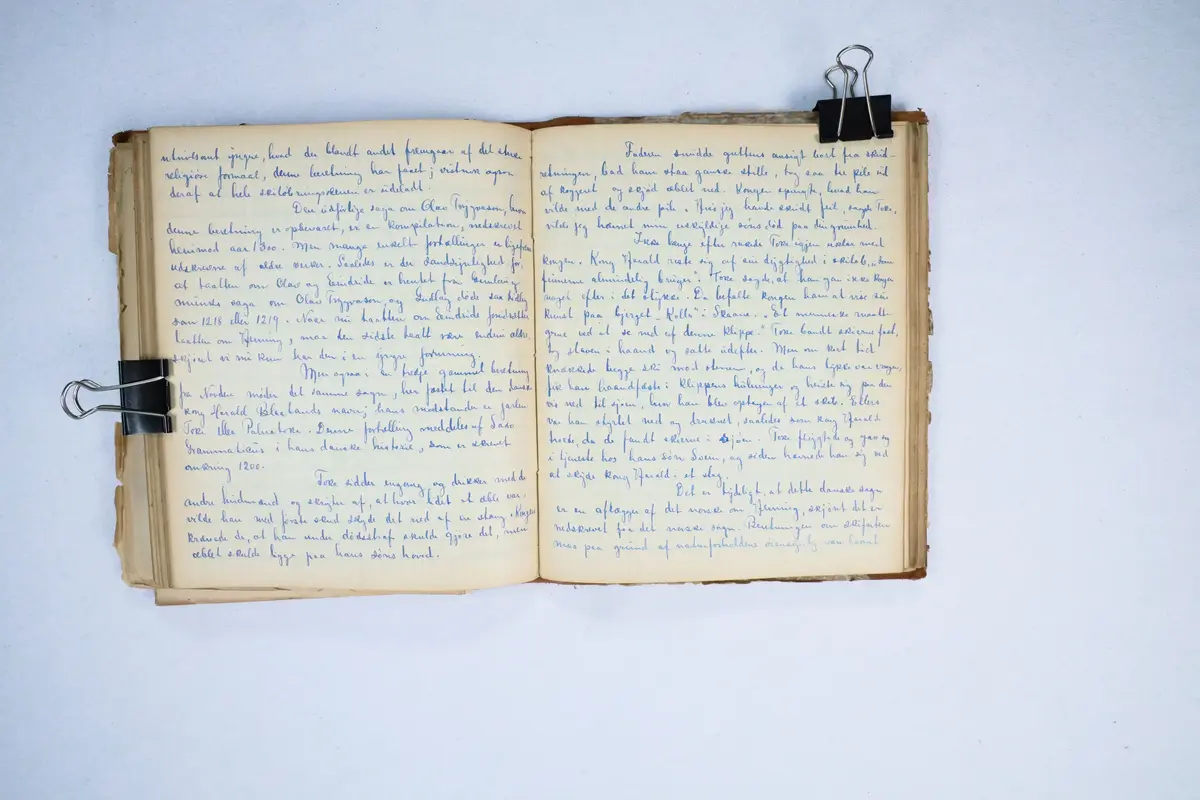 utvivlsomt yngre, hvad der blandt andet fremgaar af det sterke
religiøse formaal, denne beretning har faaet; vistnok ogsaa
deraf at hele skiløbningsscenen er udeladt.
Den udførlige saga om Olav Trygvason, hvori
denne beretning er opbevaret, er en kompilation, nedskrevet
henimod aar 1300. Men mange enkelt fortællinger er ligefrem
udskrevne af ældre verker. Saaledes er der sandsynlighed for,
at taatten om Olav og Eindride er hentet fra Gunlaug
munks saga om Olav Trygvason, og Gunlaug døde saa tidlig
som 1218 eller 1219. Naar nu taatten om Eindride forudsætter
taatten om Heming, maa den sidste taatt være endnu ældre,
skjønt vi nu kun har den i en yngre formning.
Men ogsaa i en tredje gammel beretning
fra Norden møder det samme sagn, herføstet til den danske
kong Harald Blaatands navn; hans modstander er jarlen
Toke eller Palnatoke. Denne fortælling meddeles af Saxo
Grammaticus i hans danske historie, som er skrevet
omkring 1200.
Toke sidder engang og drikker med de
andre hirdmænd og skryter af, at hvor lidet et æble var,
vilde han med første skud skyde det ned af en stang. Kongen
krævede da, at han under dødsstraf skulde gjøre det, men
æblet skulde ligge paa hans søns hoved.
Faderen snudde guttens ansigt bort fra skud-
retningen, bad ham staa ganske stille, tog saa tre pile ud
af koggeret og skjød æblet ned. Kongen spurgte, hvad han
vilde med de andre pile. "Hvis jeg havde skudt feil, sagde Toke,
vilde jeg hævnet min uskyldige søns død paa din grumhed.
Ikke længe efter raadte Toke igjen ordene med
kongen. Kong Harald roste sig af sin dygtighed i skiløb, "som
finnerne almindelig bruger". Toke sagde, at han gav ikke kongen
noget efter i det stykke. Da befalte kongen ham at vise sin
kunst paa bjerget "Kolla" i Skaane. "Et menneske maatte
grue ved at se ned af denne klippe." Toke bandt skierne fast,
tog staven i haand og satte udefter. Men om kort tid
knækkede begge ski mod stenene, og da hans lykke var vaagen,
fik han haandfæste i klippens hulninger og heiste sig paa den
vis ned til sjøen, hvor han blev optagen af et skib. Ellers
var han styrtet ned og druknet, saaledes som kong Harald
troede, da de fandt skierne i sjøen. Toke flygtede og gav sig
i tjeneste hos hans søn Sven, og siden hævnede han sig ved
at skyde kong Harald i et slag.
Det er tydeligt, at dette danske sagn
er en aflægger af det norske om Heming, skjønt det er
nedskrevet før det norske sagn. Beretningen om skifærden
maa paa grund af naturforholdene oprindelig være knyttet